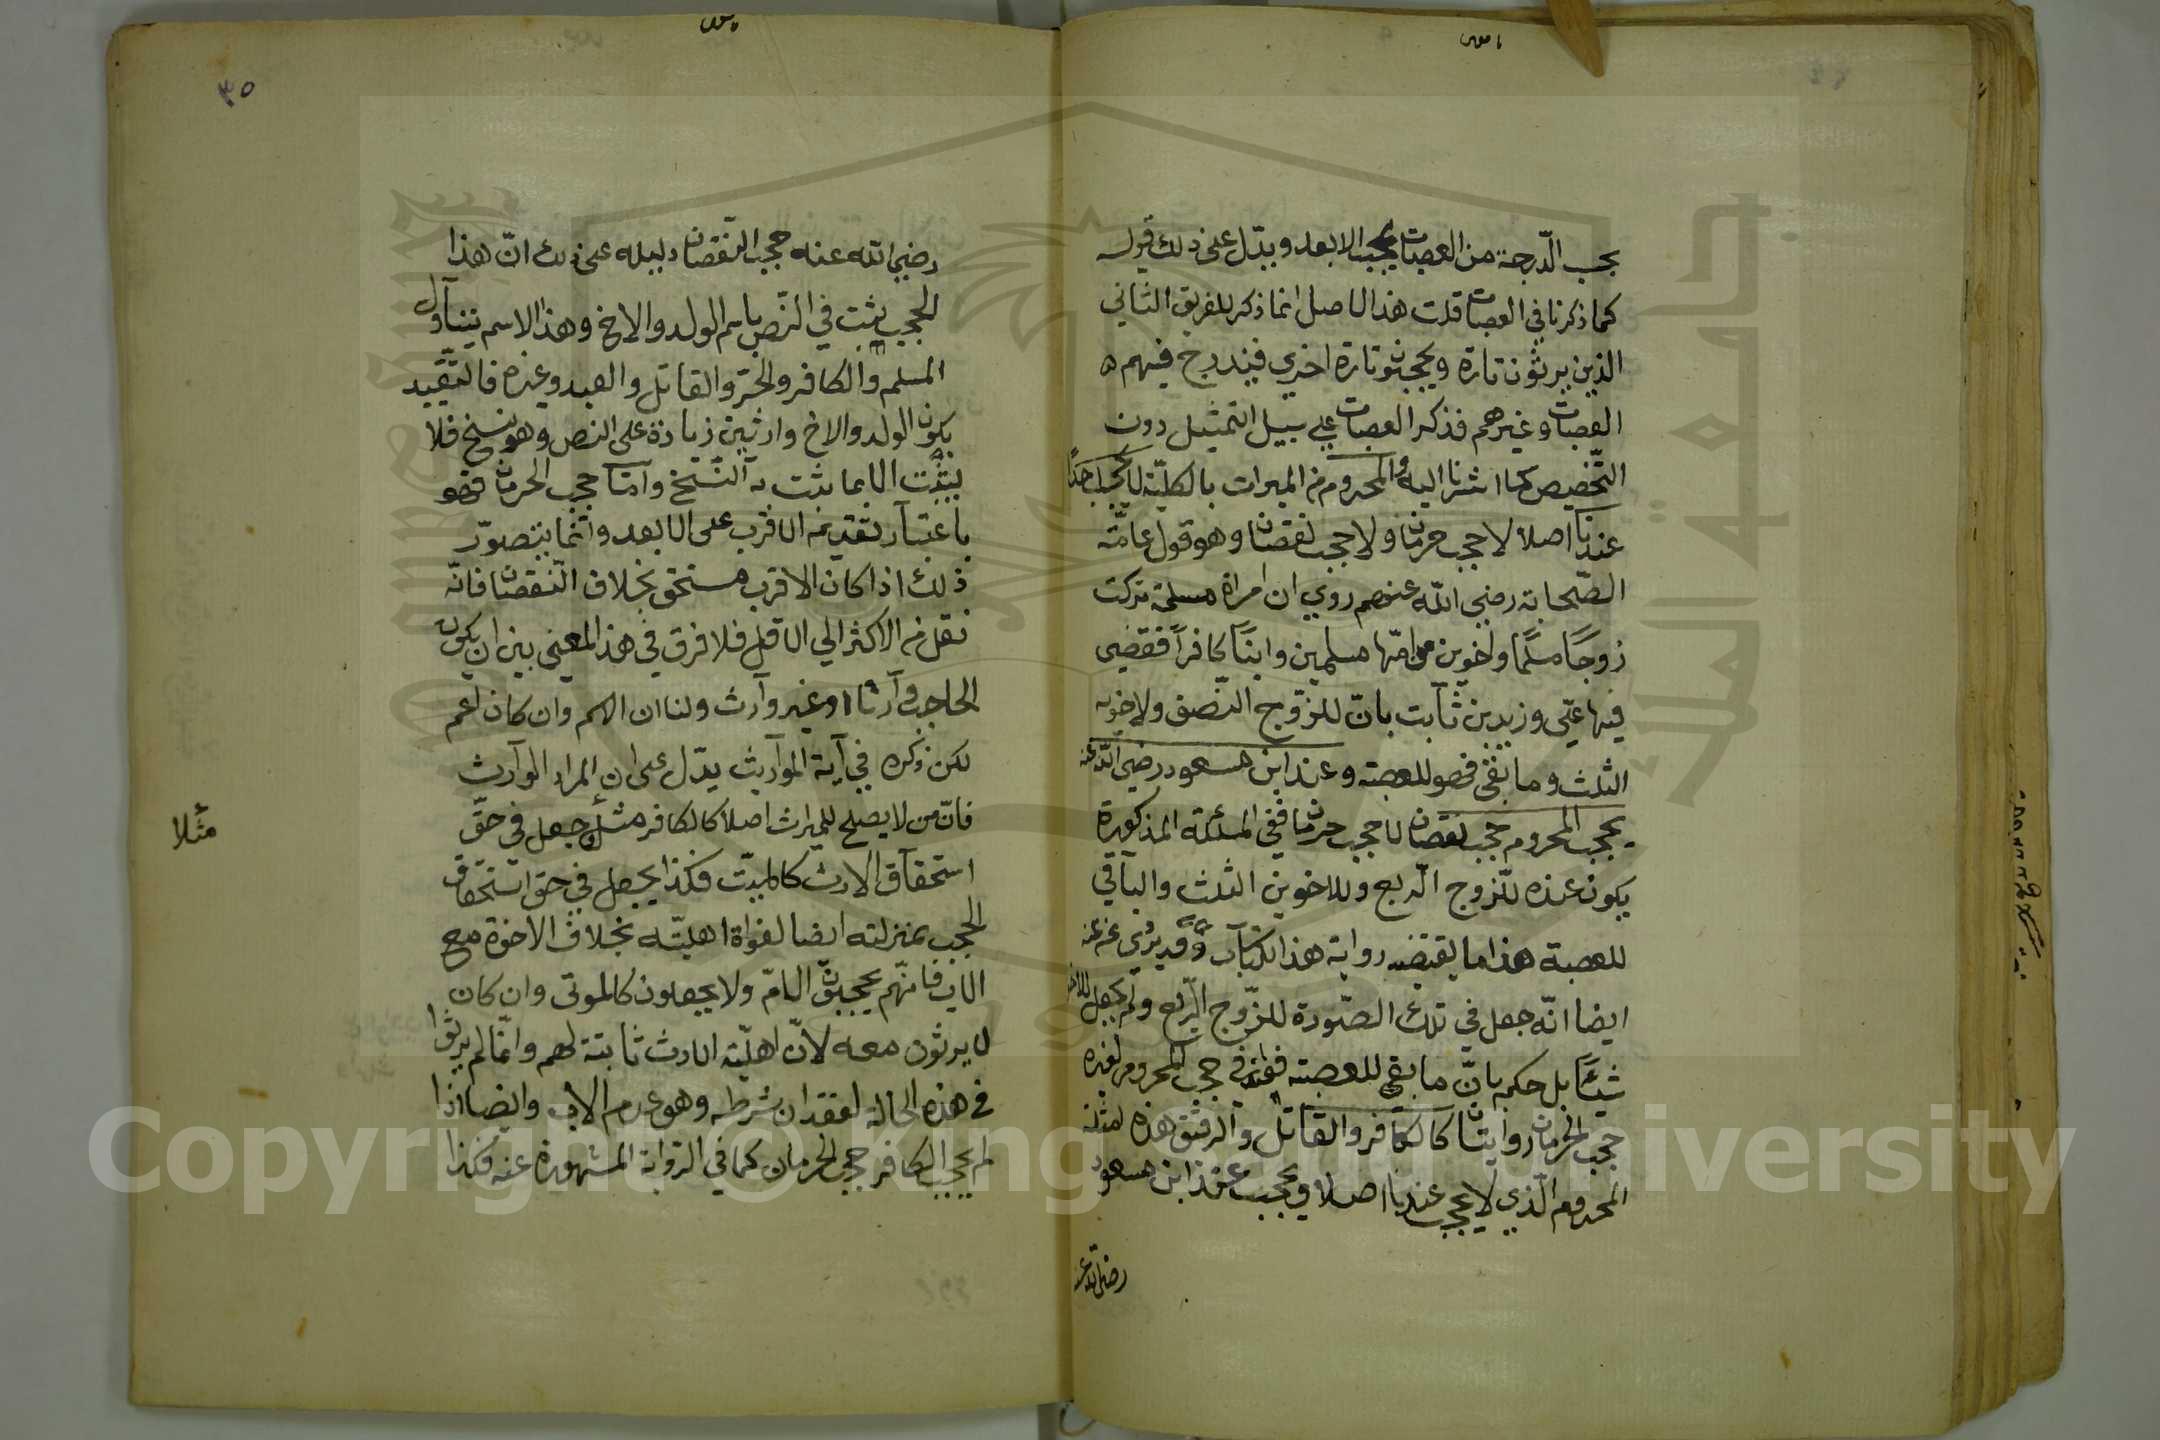 بحسب الدّرجة من العصبات يحجب الابعد ويدّل على ذلك قوله
كما ذكرنا في العصبات قلت هذا الاصل انما ذكر للفريق الثاني
الذين يرثون تارة ويحجبون تارة اخري فيندرج فيهم
العصبات وغيرهم فذكر العصبات علي سبيل التمثيل دون
التّخصيص كما اشرنا اليه والمحروم من الميراث بالكليّة لا يحجب احدًا
عندنا اصلا لا حجب حرمان ولا حجب نقصان وهو قول عامّة
الصّحابة رضي اللّه عنهم روي ان امراة مسلمة تركت
زوجًا مسلمًا واخوين من امّها مسلمين وابنًا كافراً فقضي
فيها عليّ وزيد بن ثابت بانّ للزّوج النّصف ولاخويه
الثلث وما بقي فهو للعصبة وعند ابن مسعود رضي اللّه عنه
يحجب المحروم حجب نقصان لا حجب حرمان ففي المسئلة المذكورة
يكون عنده للزوج الربع وللاخوين الثلث والباقي
للعصبة هذا ما يقتضيه رواية هذا الكتاب وقد يروي عنه
ايضا انّه جعل في تلك الصّورة للزّوج الرّبع ولم يجعل للاخوين
شيئًا بل حكم بانّ ما بقي للعصبة فعنه في حجب المحروم لغيره
حجب الحرمان روايتان كالكافر والقاتل والرقيق هذه امثلة
المحروم الّذي لا يحجب عندنا اصلا ويحجب عند ابن مسعود
رضي اللّه عنه
٣٥
رضي اللّه عنه حجب النقصان دليله على ذلك انّ هذا
الحجب يثبت في النّص باسم الولد والاخ وهذا الاسم يتناول
المسلم والكافر والحرّ والقاتل والعبد وغيره فالتّقييد
بكون الولد والاخ وارثين زيادة على النص وهو نسخ فلا
يثبت الا بما يثبت به النّسخ وامّا حجب الحرمان فهو
باعتبار تقديم الاقرب على الابعد وانّما يتصوّر
ذلك اذا كان الاقرب مستحق بخلاف النّقصان فانّه
نقل من الاكثر الي الاقل فلا فرق في هذا المعني بين ان يكون
الحاجب وارثا او غير وارث ولنا ان الاسم وان كان اعم
لكن ذكره في آية المواريث يدّل على ان المراد الوارث
فانّ من لا يصلح للميراث اصلا كالكافر مثلا جعل في حقّ
مثلا
استحقاق الارث كالميّت فكذا يجعل في حق استحقاق
الحجب بمنزلته ايضا لفوات اهليّته بخلاف الاخوة مع
الاب فانّهم يحجبون الامّ ولا يجعلون كالموتى وان كان
لا يرثون معه لانّ اهليّة الارث ثابتة لهم وانّما لم يرثوا
في هذه الحالة لفقدان شرطه وهو عدم الاب وايضا اذا
لم يحجب الكافر حجب الحرمان كما في الرّواية المشهورة عنه فكذا
Copyright © King Saud University